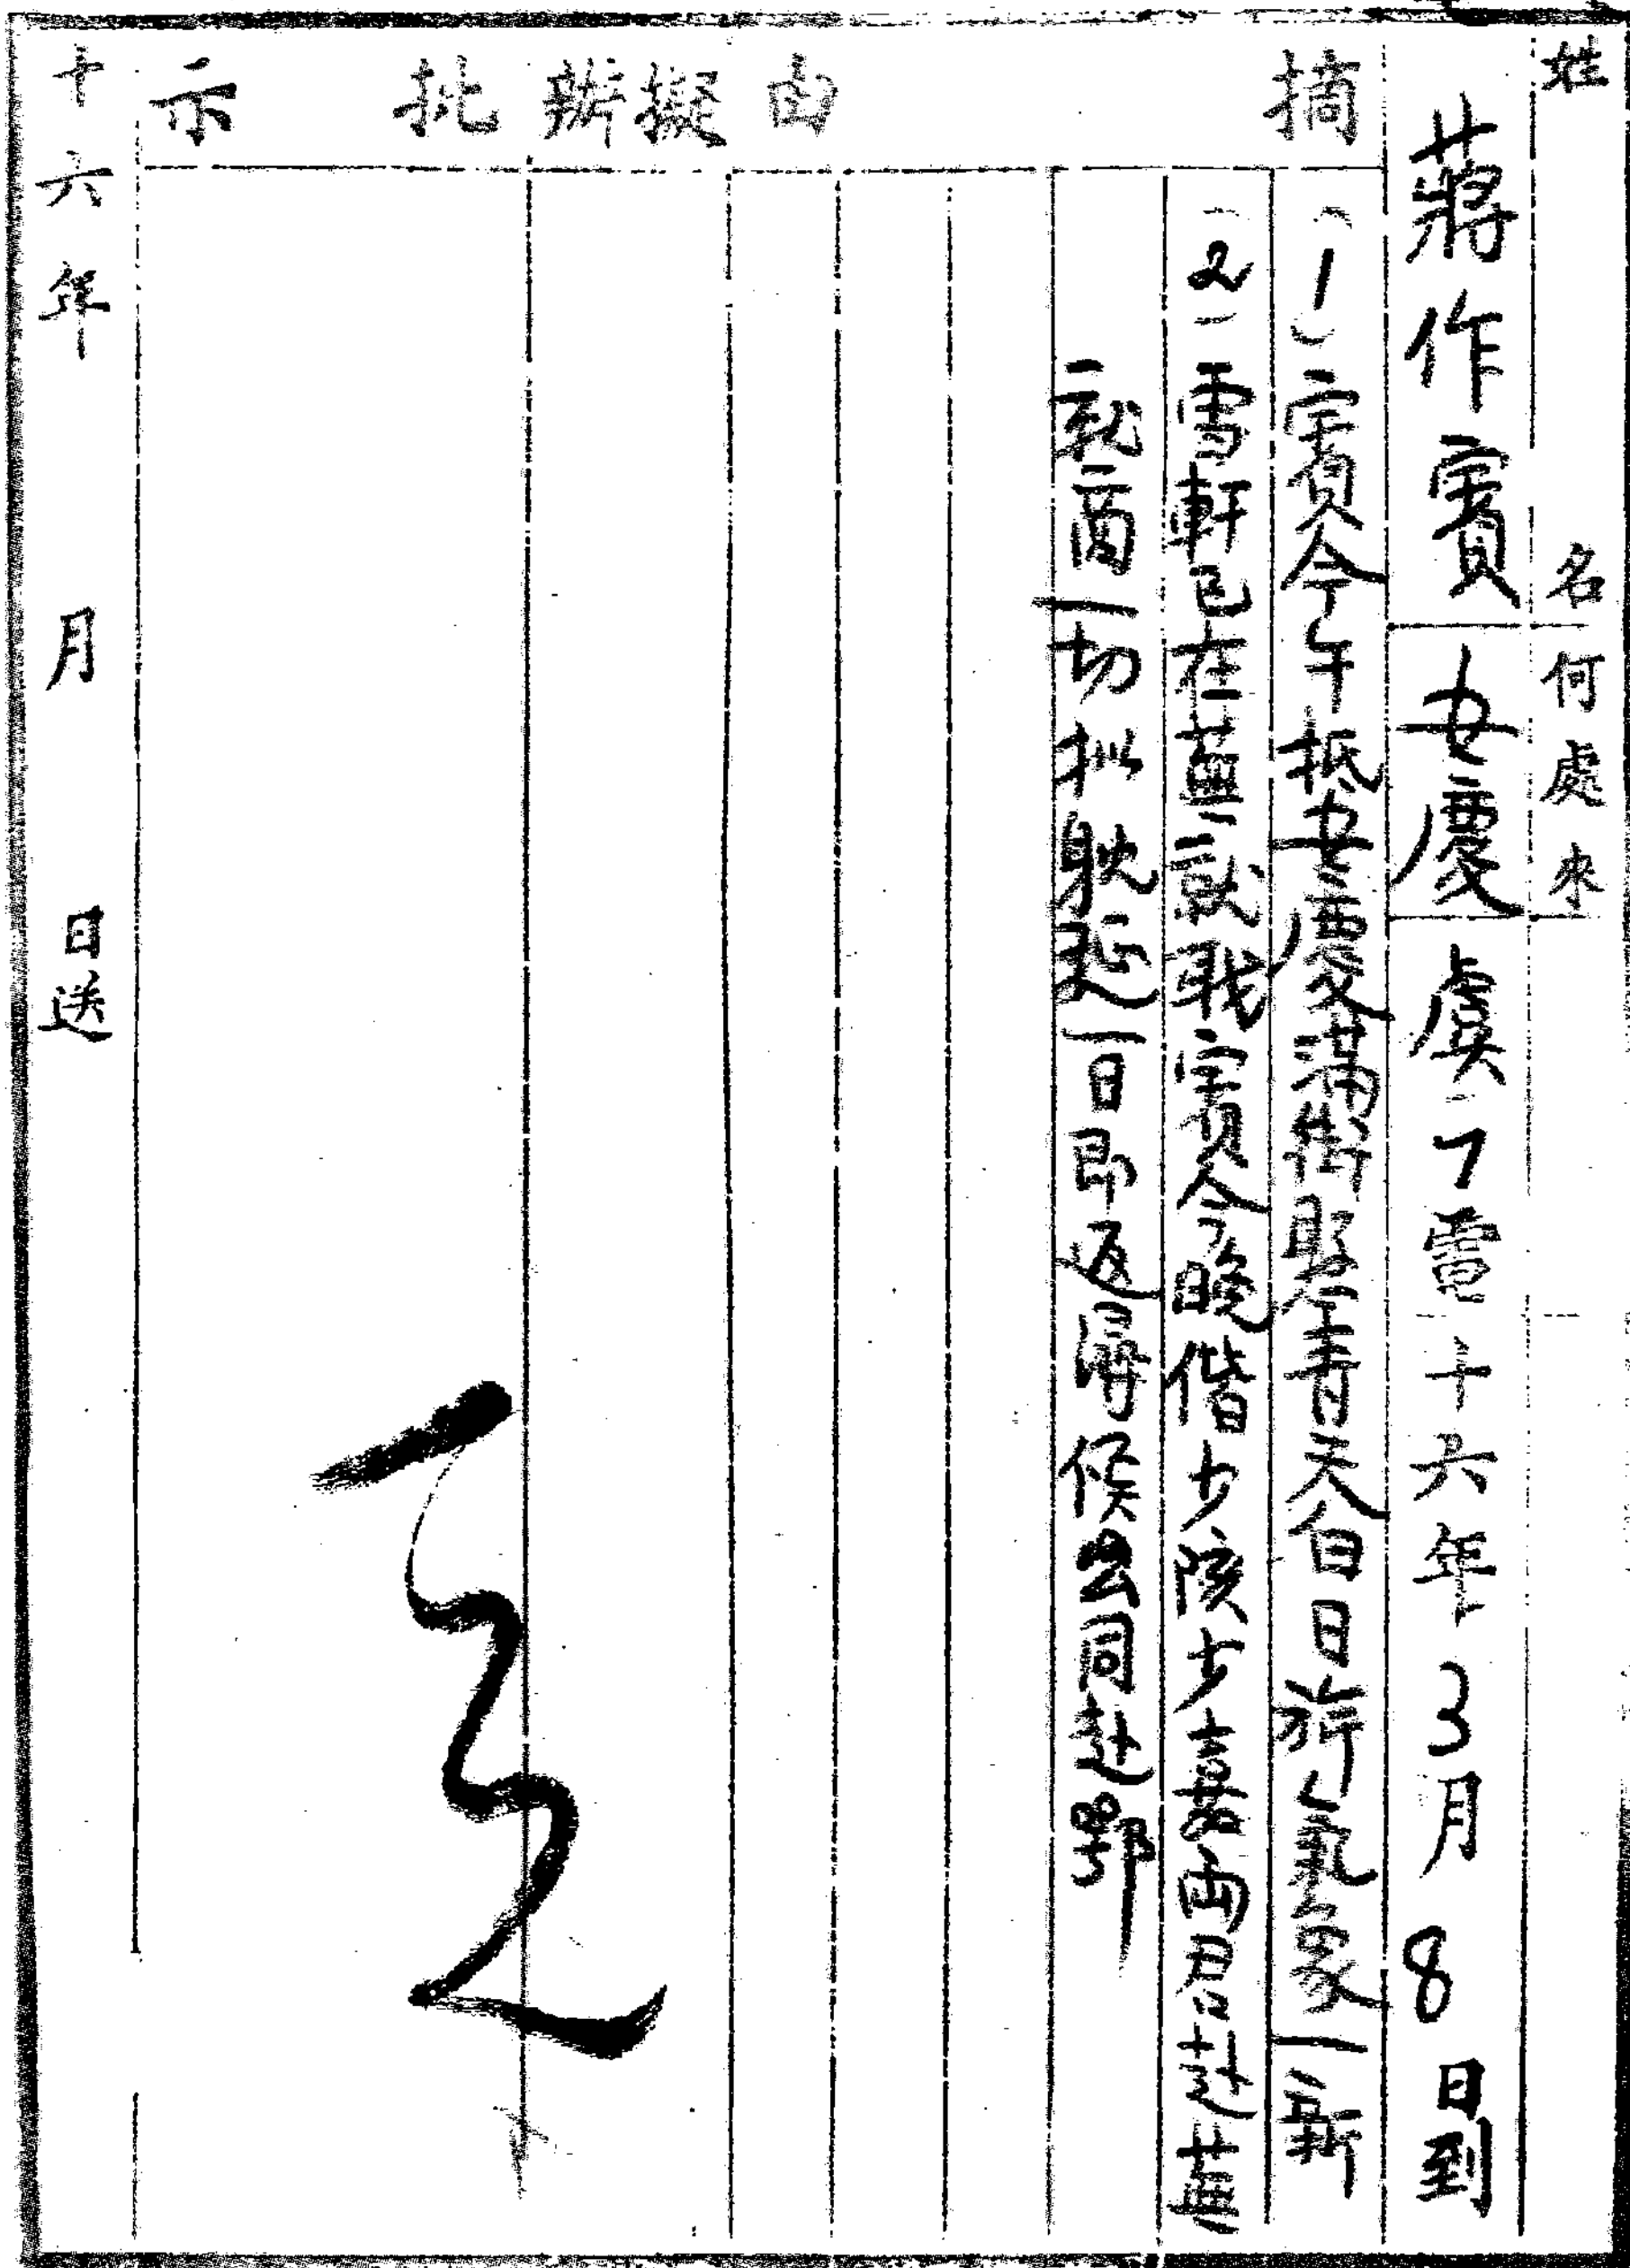 姓名 何處來
蔣作賓 安慶 虞 電 十六年3月8日到
摘由
(1)賓今午抵安慶滿街懸青天白日旂氣象一新
(2)雪軒已在蕪就職賓今晚偕少陔少嘉兩君赴蕪
就商一切擬耽延一日即返潯候公同赴鄂
擬辦
批示
十六年 月 日送